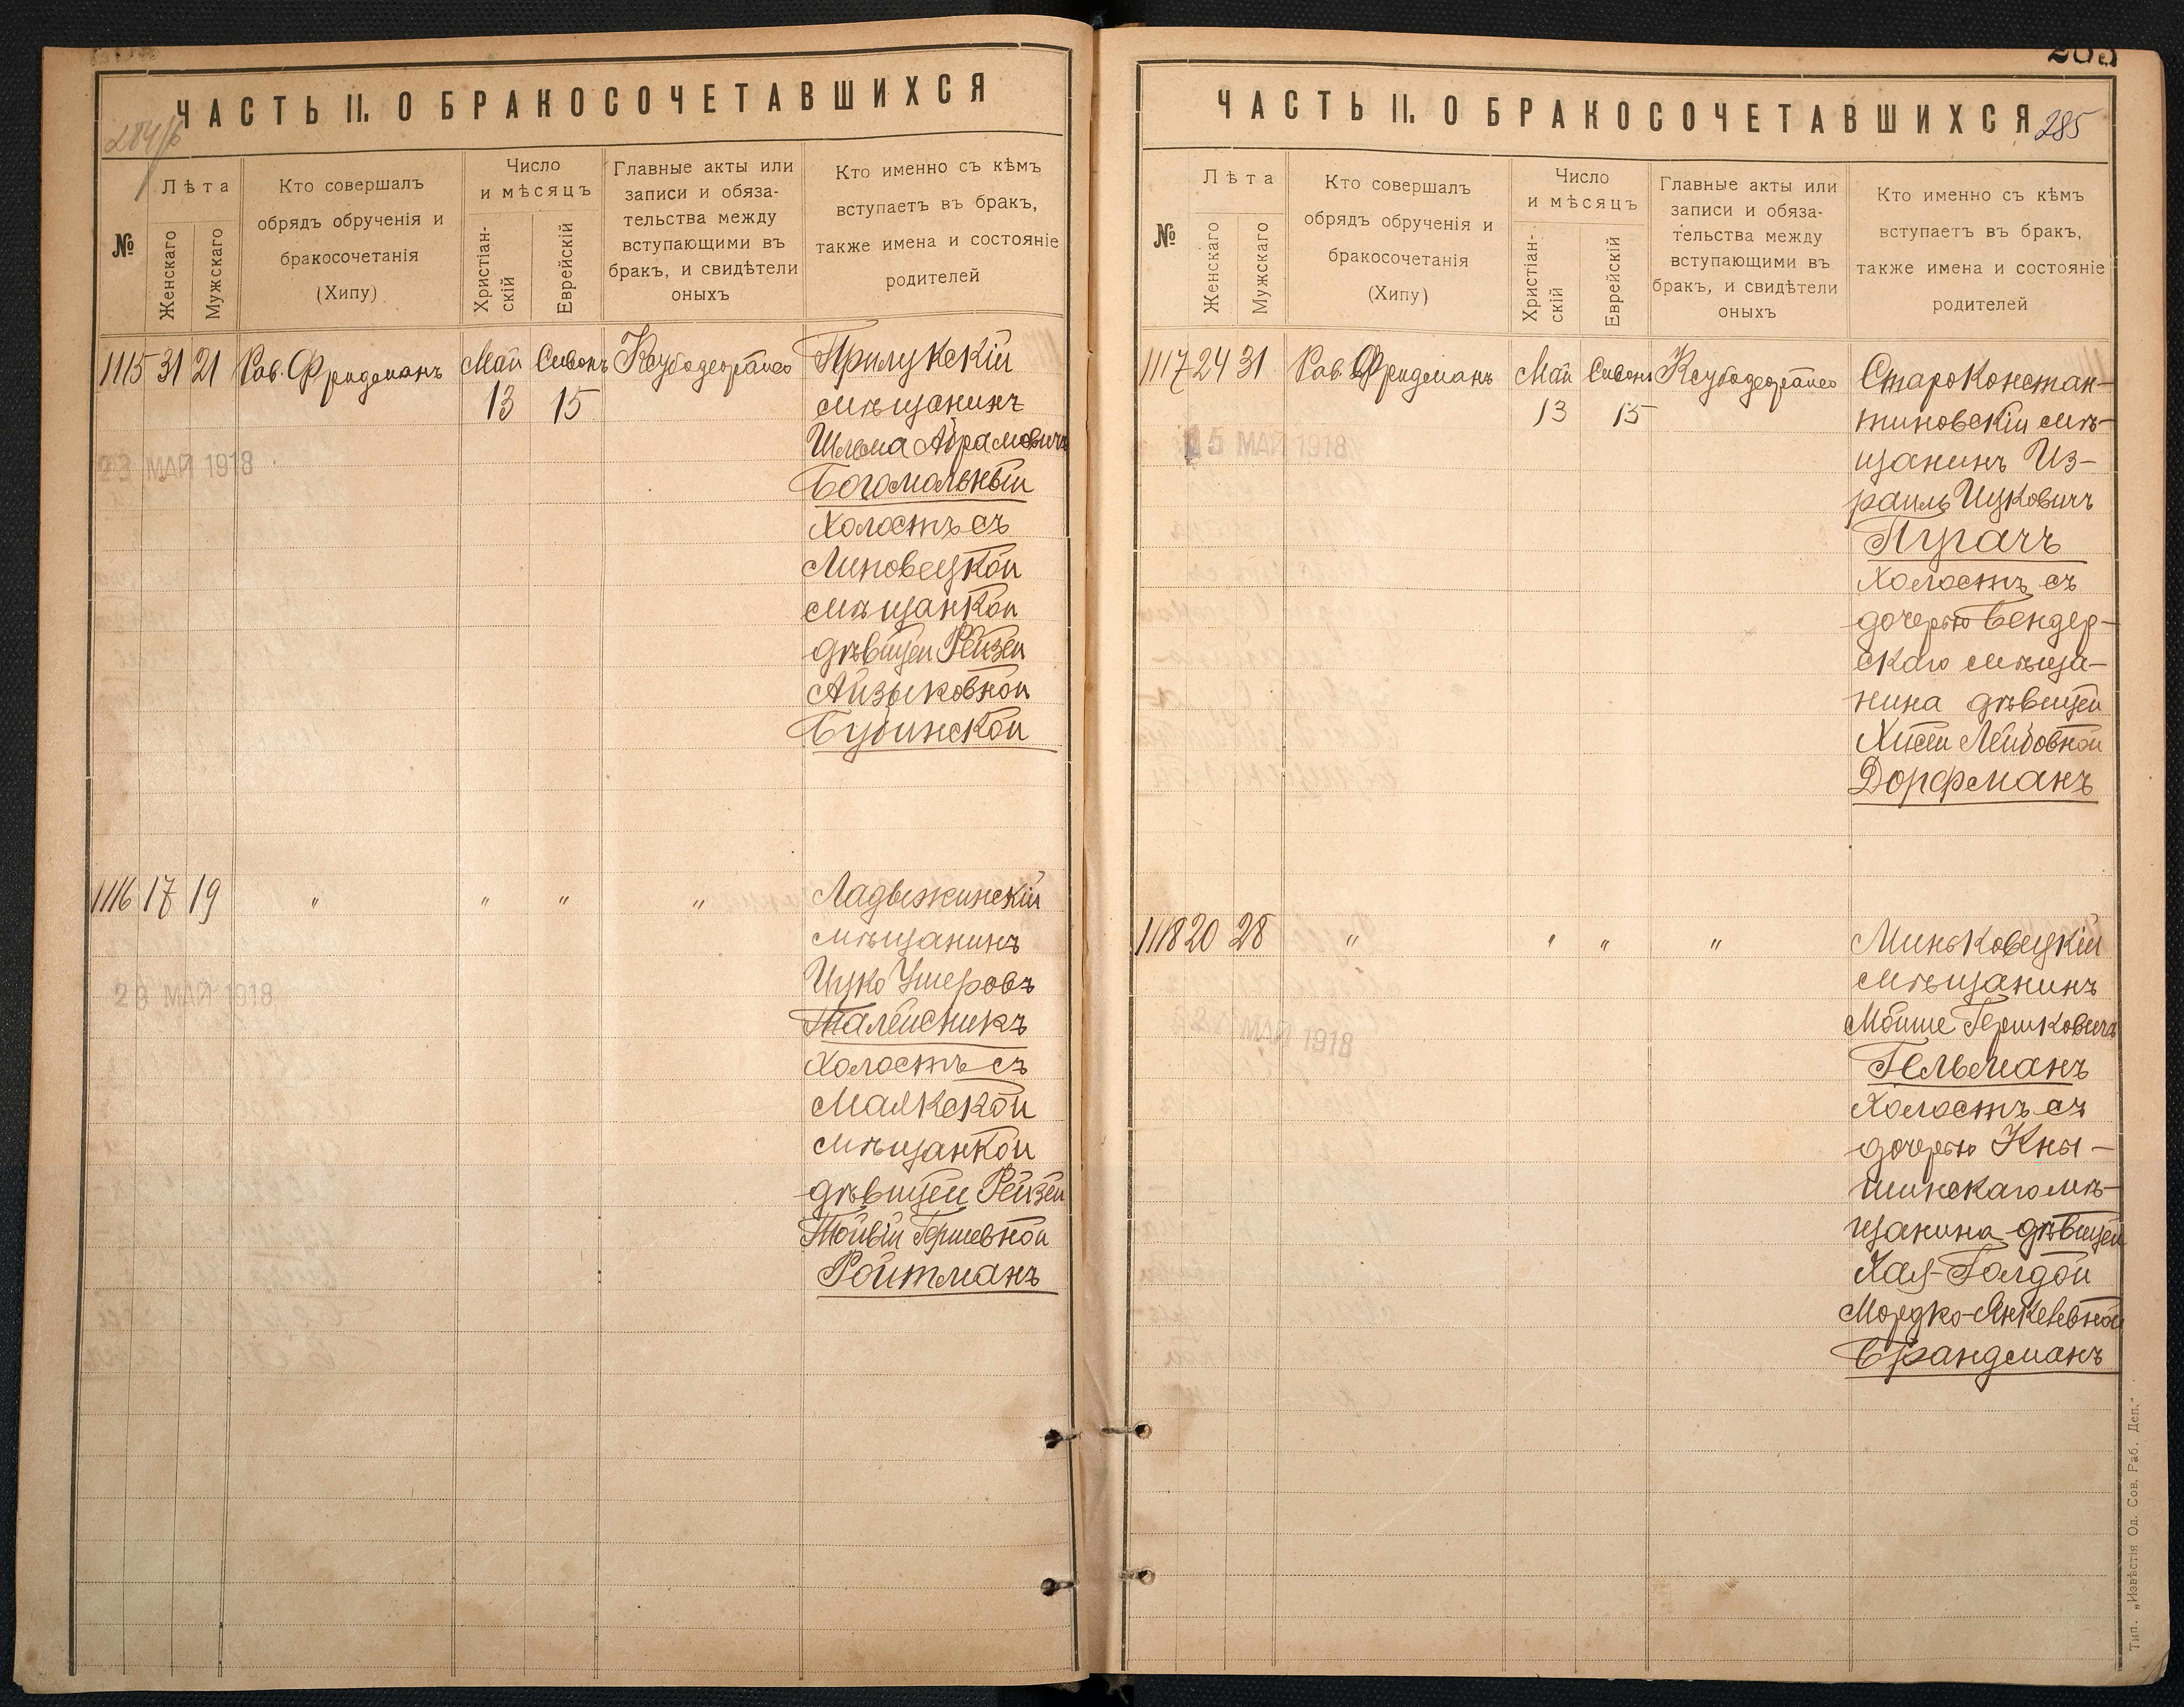 ЧАСТЬ II. О БРАКОСОЧЕТАВШИХСЯ
284/б
№
Лѣта
Женскаго
Мужскаго
Кто совершалъ
обрядъ обрученія и
бракосочетанія
(Хипу)
Число
и мѣсяцъ
Христіан-
скій
Еврейскій
Главные акты или
записи и обяза-
тельства между
вступающими въ
бракъ, и свидѣтели
оныхъ
Кто именно съ кѣмъ
вступаетъ въ бракъ,
также имена и состояніе
родителей
1115 31 21 Рав. Фридманъ Май Сивонъ
13 15
Прилукскій
мѣщанинъ
Шлема Абрамовичъ
Богомольный
холостъ съ
Липовецкой
мѣщанкой
дѣвицей Рейзей
Айзыковной
Бубинской
23 МАЙ 1918
1116 17 19 " " " "
Ладыжинскій
мѣщанинъ
Ицко Ушеровъ
Талейсникъ
холостъ съ
Маякской
мѣщанкой
дѣвицей Рейзей
Тойвій Гершевной
Ройтманъ
29 МАЙ 1918
ЧАСТЬ II. О БРАКОСОЧЕТАВШИХСЯ
285
№
Лѣта
Женскаго
Мужскаго
Кто совершалъ
обрядъ обрученія и
бракосочетанія
(Хипу)
Число
и мѣсяцъ
Христіан-
скій
Еврейскій
Главные акты или
записи и обяза-
тельства между
вступающими въ
бракъ, и свидѣтели
оныхъ
Кто именно съ кѣмъ
вступаетъ въ бракъ,
также имена и состояніе
родителей
1117 24 31 Рав. Фридманъ Май Сивонъ
13 15
Староконстан-
тиновскій мѣ-
щанинъ Из-
раиль Ицковичъ
Пугачъ
холостъ съ
дочерью Бендер-
скаго мѣща-
нина дѣвицей
Хисей Лейбовной
Дорфманъ
15 МАЙ 1918
1118 20 28 " " " "
Миньковецкій
мѣщанинъ
Мойше Гершковичъ
Гельманъ
холостъ съ
дочерью Кны-
шинскаго мѣ-
щанина дѣвицей
Хая-Голдой
Мордко-Янкелевной
Брандманъ
МАЙ 1918
Тип. „Извѣстія Од. Сов. Раб. Деп."